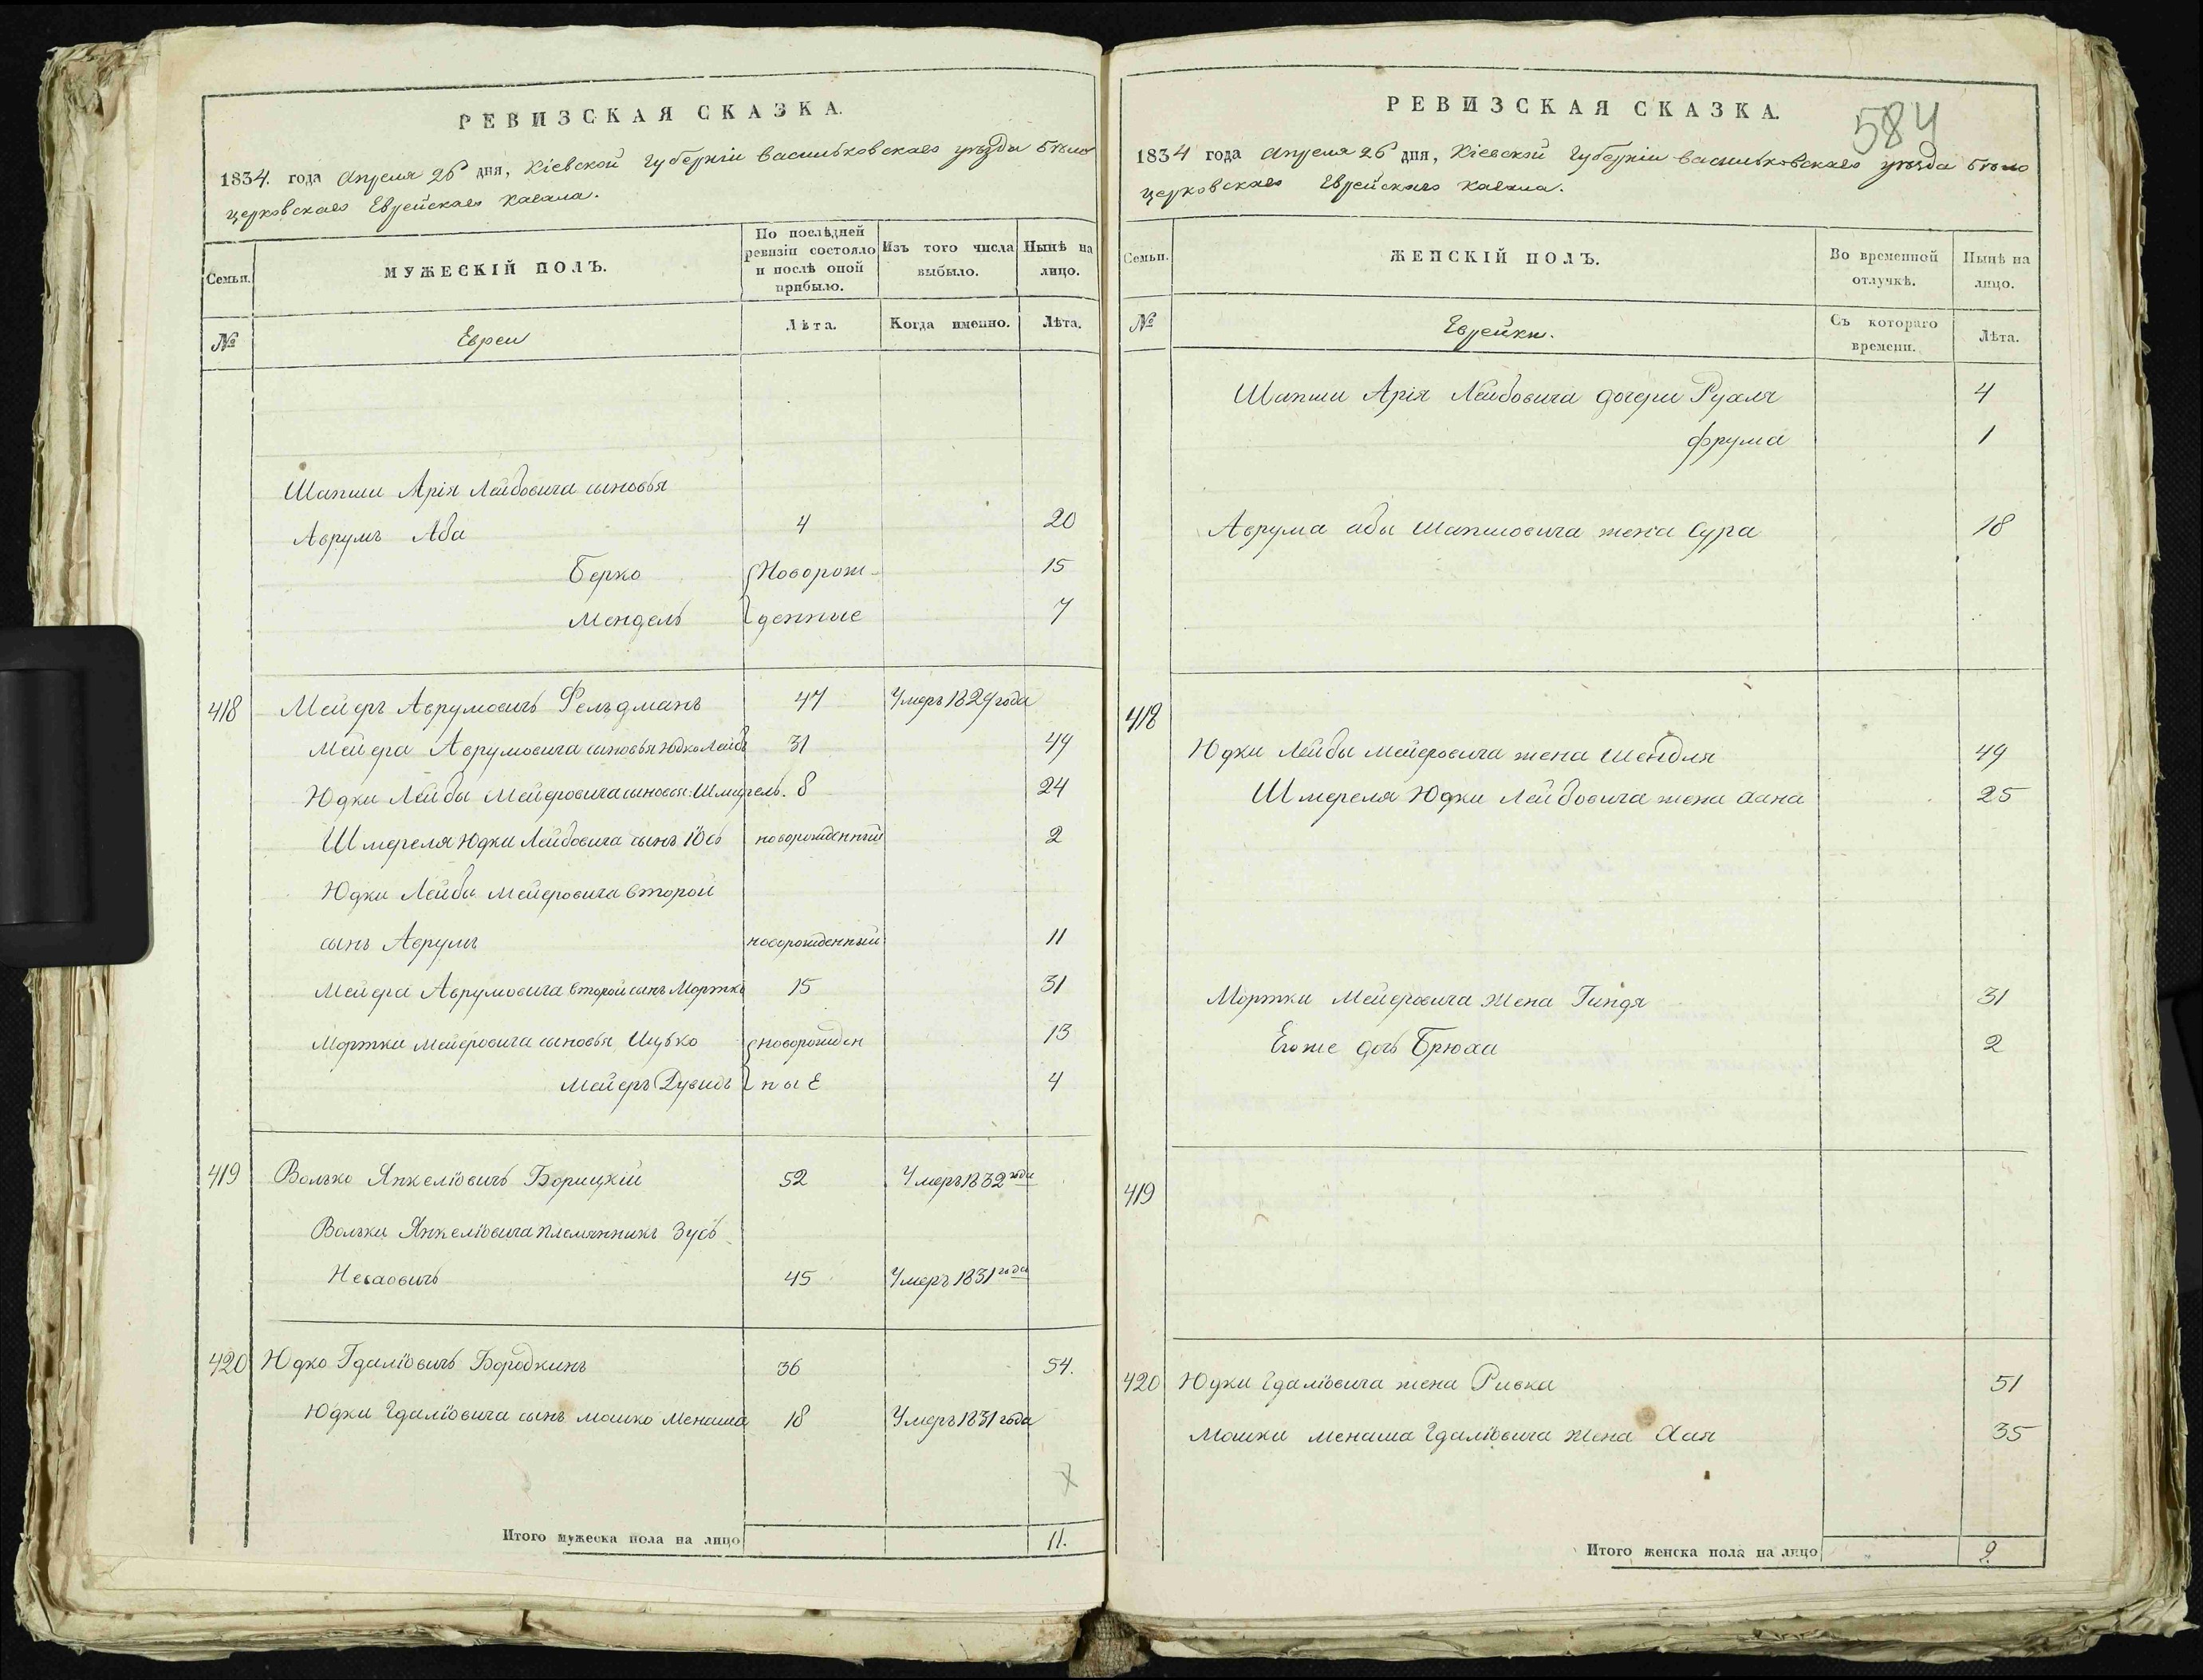 РЕВИЗСКАЯ СКАЗКА.
1834. года Апреля 26 дня, Кіевской Губерніи Васильковскаго уѣзда Бѣло
церковскаго Еврейскаго Кагала.
Семьи.
МУЖЕСКІЙ ПОЛЪ.
По послѣдней ревизіи состояло и послѣ оной прибыло.
Изъ того числа выбыло.
Нынѣ на лицо.
№
Евреи
Лѣта.
Когда именно.
Лѣта.
Шапши Арія Лейбовича сыновья
Аврумъ Аба 4 20
Берко Новорож- 15
Мендель денные 7
418 Мейеръ Аврумовичъ Фельдманъ 47 Умеръ 1829 года
Мейера Аврумовича сыновья Юдко Лейба 31 49
Юдки Лейбы Мейеровича сыновья: Шмерель. 8 24
Шмереля Юдки Лейбовича сынъ Іось новорожденный 2
Юдки Лейбы Мейеровича второй
сынъ Аврумъ новорожденный 11
Мейера Аврумовича второй сынъ Мортко 15 31
Мортки Мейеровича сыновья Ицько новорожден 13
Мейеръ Дувидъ ные 4
419 Волько Янкеліовичъ Борицкій 52 Умеръ 1832 года
Вольки Янкеліовича племянникъ Зусь
Несаовичъ 45 Умеръ 1831 года
420 Юдко Гдаліовичъ Бородкинъ 36 54.
Юдки Гдаліовича сынъ Мошко Менаша 18 Умеръ 1831 года
Итого мужеска пола на лицо 11.
584
РЕВИЗСКАЯ СКАЗКА.
1834 года Апреля 26 дня, Кіевской Губерніи Васильковскаго уѣзда Бѣло
церковскаго Еврейскаго Кагала.
Семьи.
ЖЕНСКІЙ ПОЛЪ.
Во временной отлучкѣ.
Нынѣ на лицо.
№
Еврейки.
Съ котораго времени.
Лѣта.
Шапши Арія Лейбовича дочери Рухля 4
Фрума 1
Аврума абы Шапшовича жена Сура 18
418
Юдки Лейбы Мейеровича жена Шейндля 49
Шмереля Юдки Лейбовича жена Хана 25
Мортки Мейеровича жена Гиндя 31
Егоже дочь Брюха 2
419
420 Юдки Гдаліовича жена Ривка 51
Мошки Менаша Гдаліовича жена Хая 35
Итого женска пола на лицо 9.